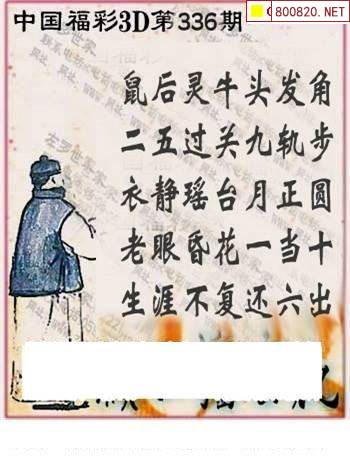 800820.NET
中国福彩3D第336期
鼠后灵牛头发角
二五过关九轨步
衣静瑶台月正圆
老眼昏花一当十
生涯不复还六出